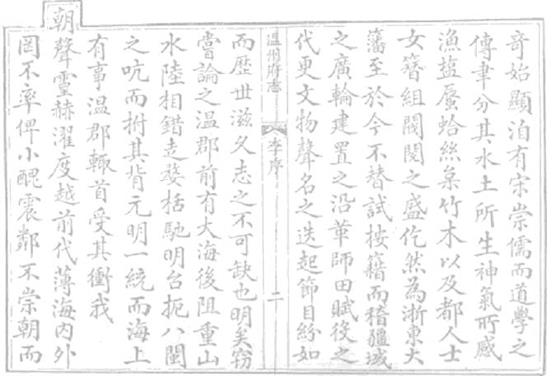 奇始顯洎有宋崇儒而道學之
傳聿分其水土所生神氣所感
漁鹽蜃蛤絲枲竹木以及都人士
女簪組閥閱之盛仡然為浙東大
藩至於今不替試按籍而稽疆域
之廣輪建置之沿革師田賦役之
代更文物聲名之迭起節目紛如
溫州府志
李序
二
而歷世滋久志之不可缺也明矣竊
嘗論之溫郡前有大海後阻重山
水陸相錯走婺括馳明台扼八閩
之吭而拊其背元明一統而海上
有事溫郡輒首受其衝我
朝聲靈赫濯度越前代薄海內外
罔不率俾小醜震鄰不崇朝而